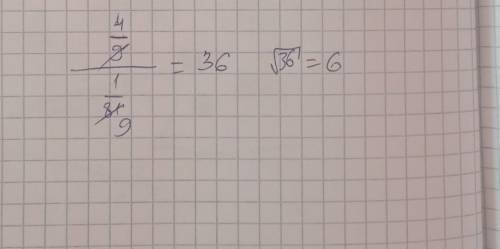 4/9 / 1/81 = 36 √36 = 6
9